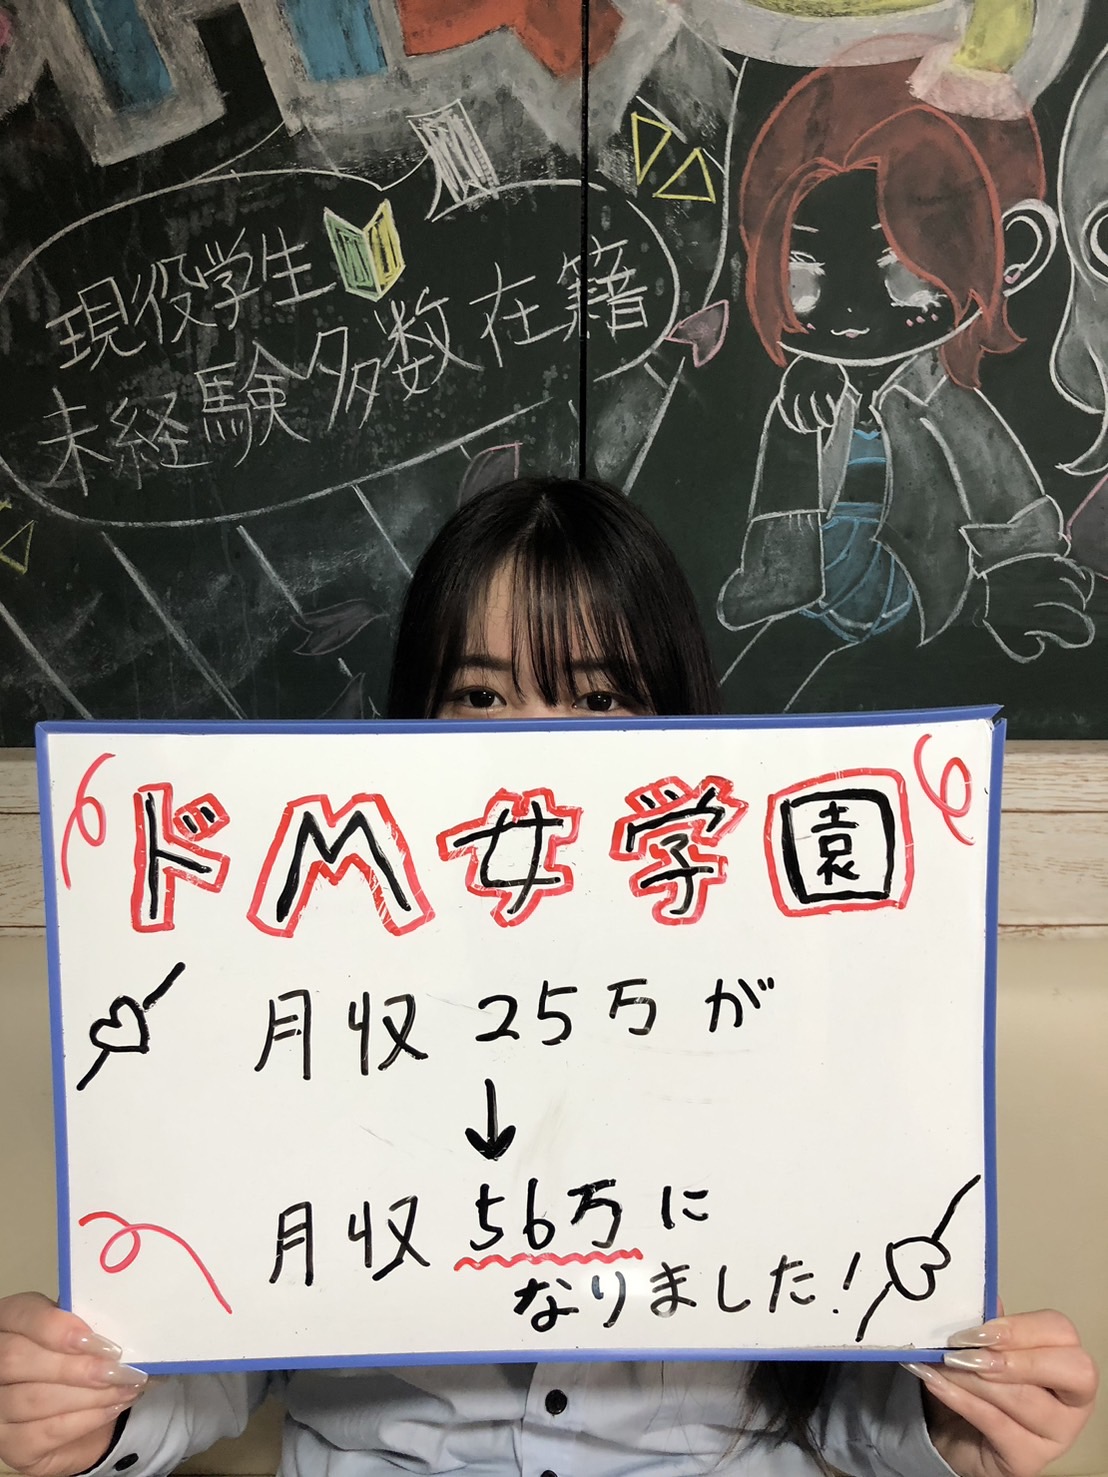 現役学生
未経験多数在籍
ドM女学園
月収25万が
↓
月収56万に
なりました!